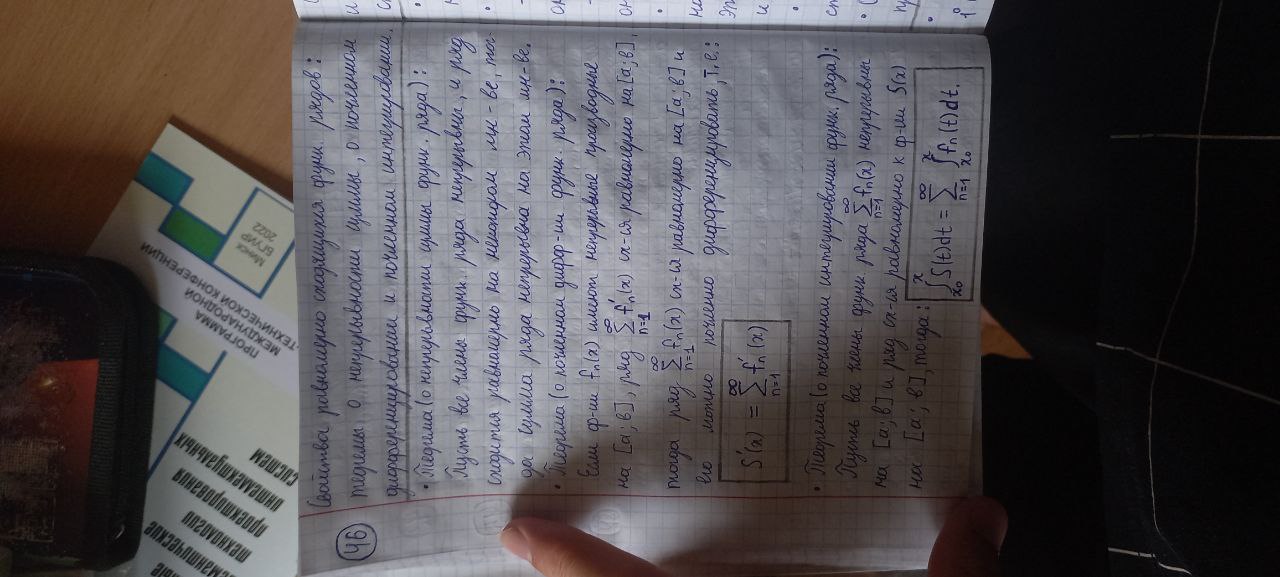 46
Свойства равномерно сходящихся функ. рядов:
теоремы о непрерывности суммы, о почленном
дифференцировании и почленном интегрировании.
• Теорема (о непрерывности суммы функ. ряда):
Пусть все члены функ. ряда непрерывны, и ряд
сходится равномерно на некотором мн-ве, тог-
да сумма ряда непрерывна на этом мн-ве.
• Теорема (о почленном дифф-ии функ. ряда):
Если ф-ии fₙ(x) имеют непрерывные производные
на [a;b], ряд ∑ₙ₌₁^∞ fₙ'(x) сх-ся равномерно на [a;b],
тогда ряд ∑ₙ₌₁^∞ fₙ(x) сх-ся равномерно на [a;b] и
его можно почленно дифференцировать, т.е.:
S'(x) = ∑ₙ₌₁^∞ fₙ'(x)
• Теорема (о почленном интегрировании функ. ряда):
Пусть все члены функ. ряда ∑ₙ₌₁^∞ fₙ(x) непрерывны
на [a;b] и ряд сх-ся равномерно к ф-ии S(x)
на [a;b], тогда: ∫ₓ₀ˣ S(t)dt = ∑ₙ₌₁^∞ ∫ₓ₀ˣ fₙ(t)dt.
ПРОГРАММА
МЕЖДУНАРОДНОЙ
ТЕХНИЧЕСКОЙ КОНФЕРЕНЦИИ
Минск
БГУИР
2022
технологии
проектирования
интеллектуальных
систем